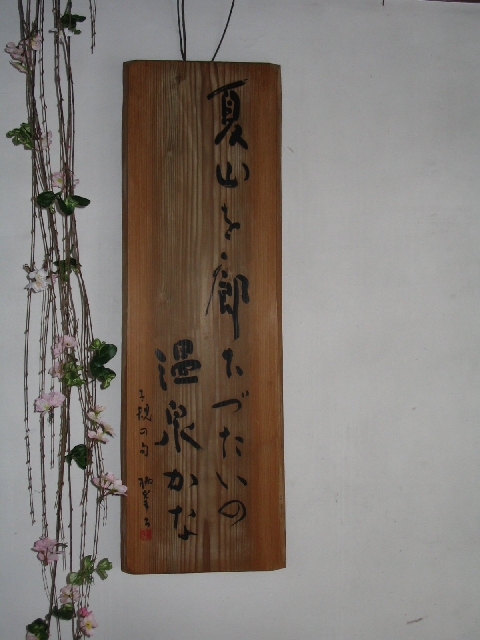 夏山を廊たづたいの
温泉かな
子規の句